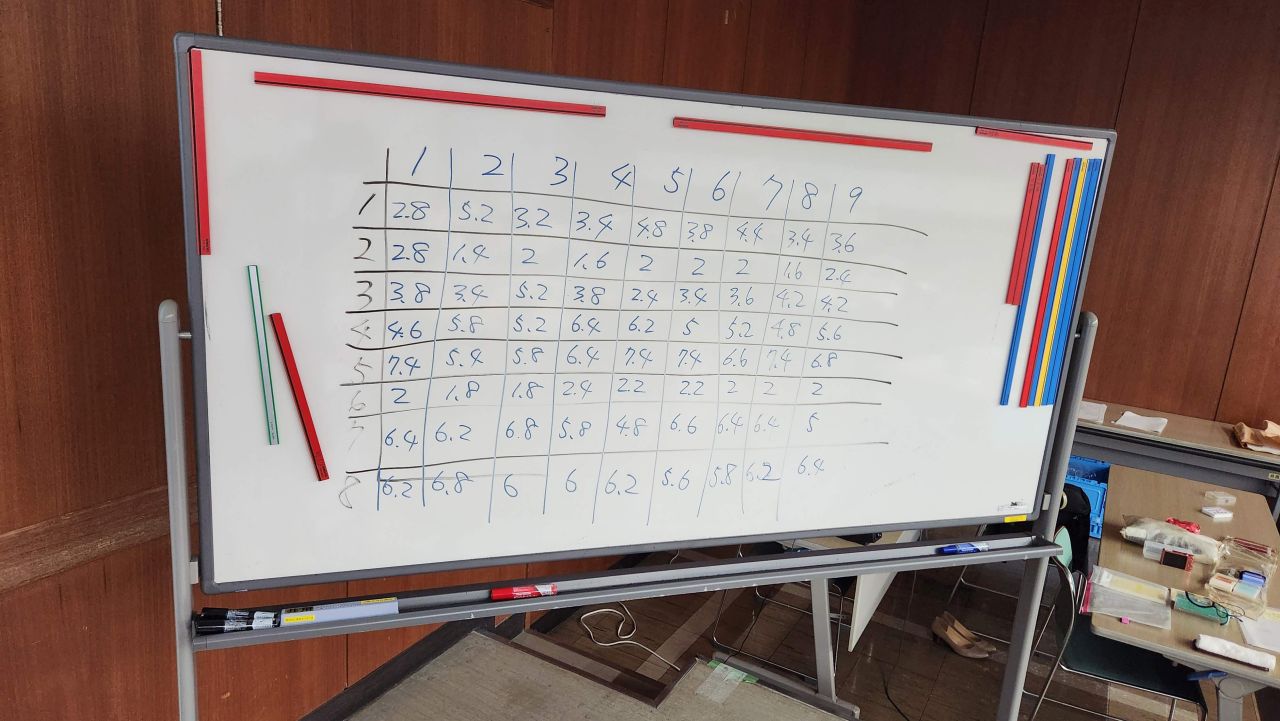 1 2 3 4 5 6 7 8 9
1 2.8 5.2 3.2 3.4 4.8 3.8 4.4 3.4 3.6
2 2.8 1.4 2 1.6 2 2 2 1.6 2.4
3 3.8 3.4 5.2 3.8 2.4 3.4 3.6 4.2 4.2
4 4.6 5.8 5.2 6.4 6.2 5 5.2 4.8 5.6
5 7.4 5.4 5.8 6.4 7.4 7.4 6.6 7.4 6.8
6 2 1.8 1.8 2.4 2.2 2.2 2 2 2
7 6.4 6.2 6.8 5.8 4.8 6.6 6.4 6.4 5
8 6.2 6.8 6 6 6.2 5.6 5.8 6.2 6.4